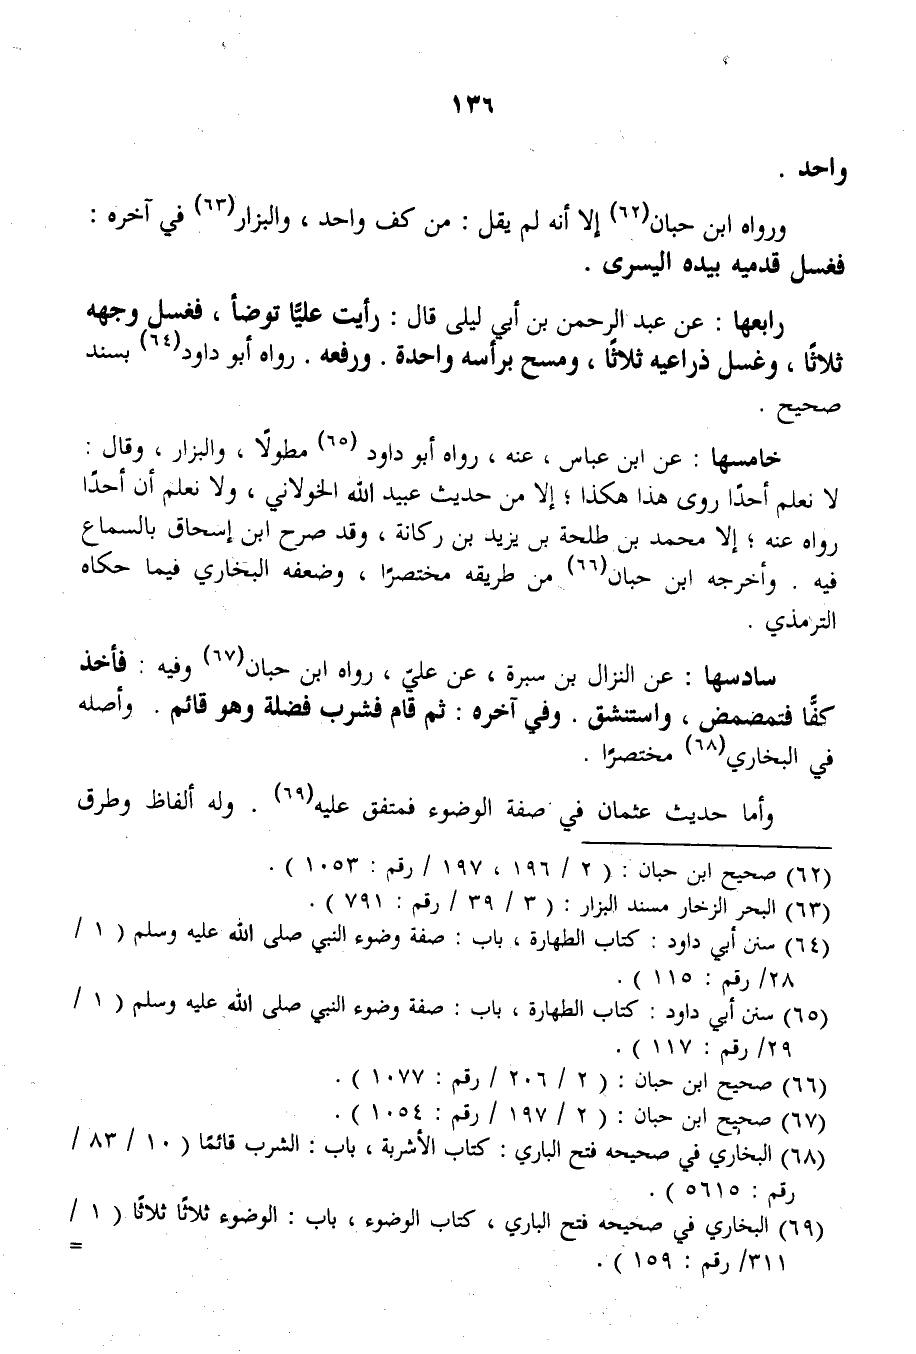 ١٣٦
واحد .
ورواه ابن حبان(٦٢) إلا أنه لم يقل : من كف واحد ، والبزار(٦٣) في آخره :
فغسل قدميه بيده اليسرى .
رابعها : عن عبد الرحمن بن أبي ليلى قال : رأيت عليًّا توضأ ، فغسل وجهه
ثلاثًا ، وغسل ذراعيه ثلاثًا ، ومسح برأسه واحدة . ورفعه . رواه أبو داود(٦٤) بسند
صحيح .
خامسها : عن ابن عباس ، عنه ، رواه أبو داود (٦٥) مطولًا ، والبزار ، وقال :
لا نعلم أحدًا روى هذا هكذا ؛ إلا من حديث عبيد الله الخولاني ، ولا نعلم أن أحدًا
رواه عنه ؛ إلا محمد بن طلحة بن يزيد بن ركانة ، وقد صرح ابن إسحاق بالسماع
فيه . وأخرجه ابن حبان(٦٦) من طريقه مختصرًا ، وضعفه البخاري فيما حكاه
الترمذي .
سادسها : عن النزال بن سبرة ، عن عليّ ، رواه ابن حبان(٦٧) وفيه : فأخذ
كفًّا فتمضمض ، واستنشق . وفي آخره : ثم قام فشرب فضلة وهو قائم . وأصله
في البخاري(٦٨) مختصرًا .
وأما حديث عثمان في صفة الوضوء فمتفق عليه(٦٩) . وله ألفاظ وطرق
(٦٢) صحيح ابن حبان : ( ٢ / ١٩٦ ، ١٩٧ / رقم : ١٠٥٣ ) .
(٦٣) البحر الزخار مسند البزار : ( ٣ / ٣٩ / رقم : ٧٩١ ) .
(٦٤) سنن أبي داود : كتاب الطهارة ، باب : صفة وضوء النبي صلى الله عليه وسلم ( ١ /
٢٨/ رقم : ١١٥ ) .
(٦٥) سنن أبي داود : كتاب الطهارة ، باب : صفة وضوء النبي صلى الله عليه وسلم ( ١ /
٢٩/ رقم : ١١٧ ) .
(٦٦) صحيح ابن حبان : ( ٢ / ٢٠٦ / رقم : ١٠٧٧ ) .
(٦٧) صحيح ابن حبان : ( ٢ / ١٩٧ / رقم : ١٠٥٤ ) .
(٦٨) البخاري في صحيحه فتح الباري : كتاب الأشربة ، باب : الشرب قائمًا ( ١٠ / ٨٣ /
رقم : ٥٦١٥ ) .
(٦٩) البخاري في صحيحه فتح الباري ، كتاب الوضوء ، باب : الوضوء ثلاثًا ثلاثًا ( ١ /
٣١١/ رقم : ١٥٩ ) .
=